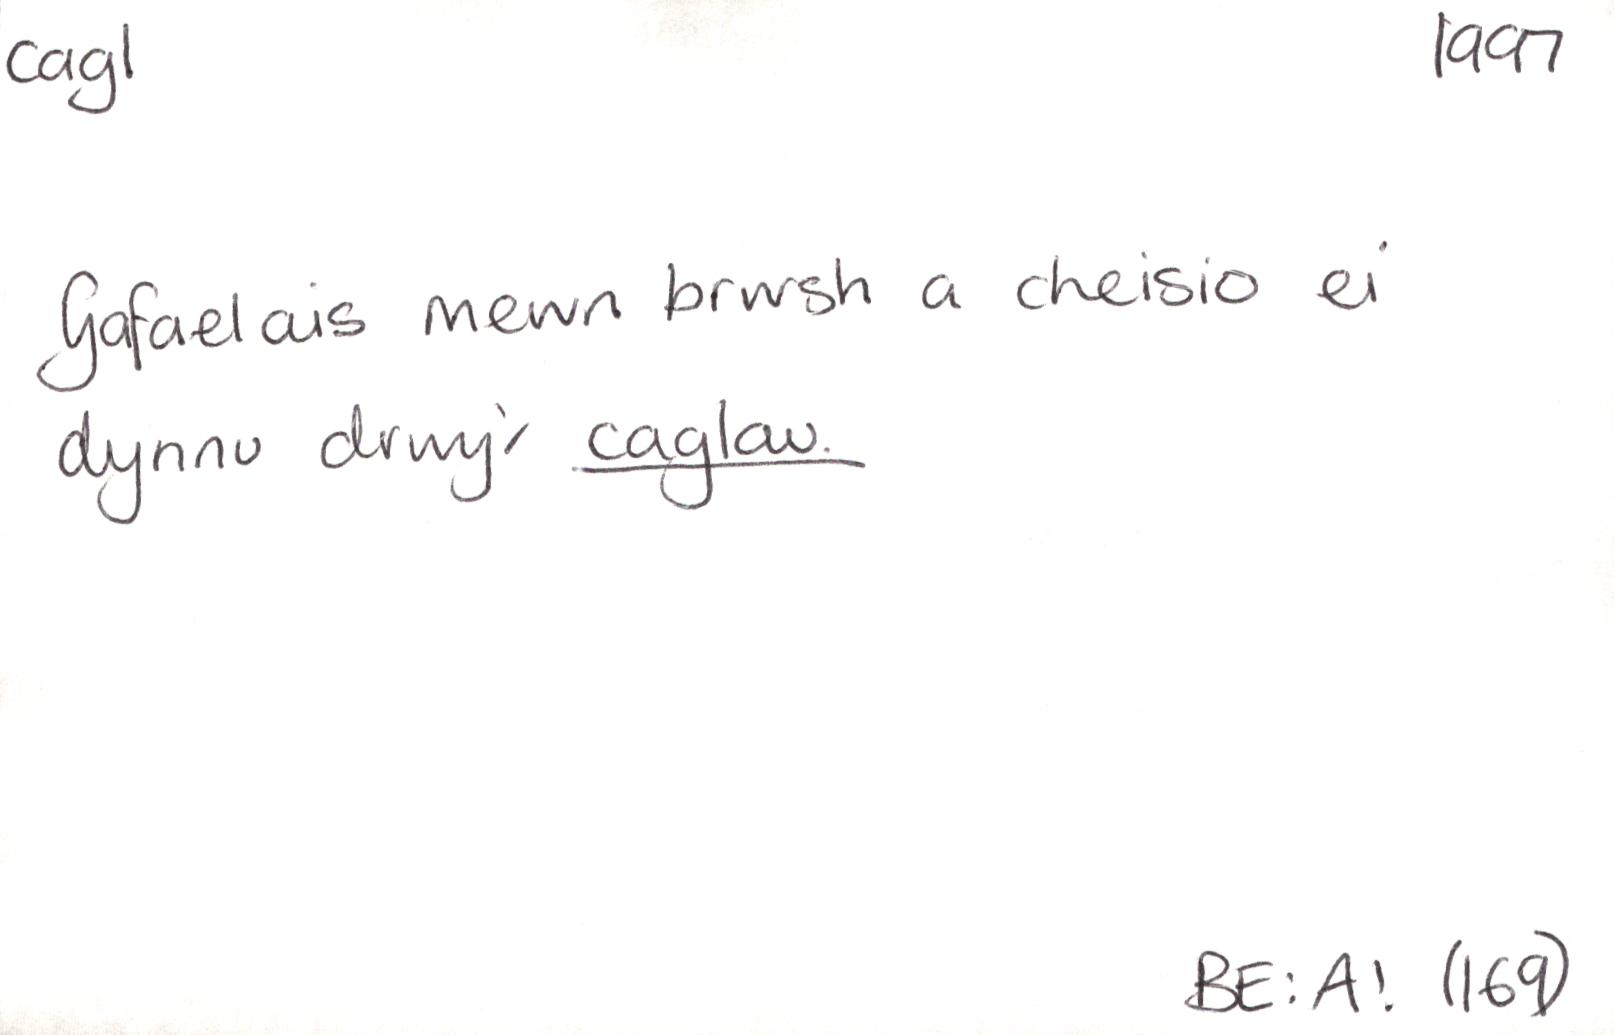 cagl 1997
Gafaelais mewn brwsh a cheisio ei
dynnu drwy'r caglau.
BE: A! (169)